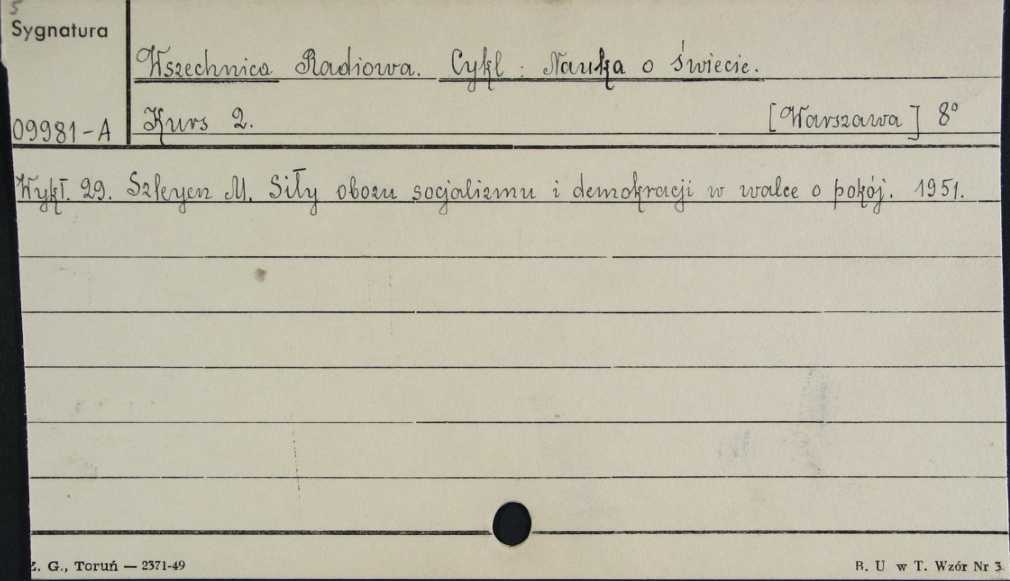 5
Sygnatura
Wszechnica Radiowa. Cykl: Nauka o świecie.
09981-A Kurs 2. [Warszawa] 8°
Wykł. 29. Szleyen M. Siły obozu socjalizmu i demokracji w walce o pokój. 1951.
Z. G., Toruń — 2371-49 B. U w T. Wzór Nr 3